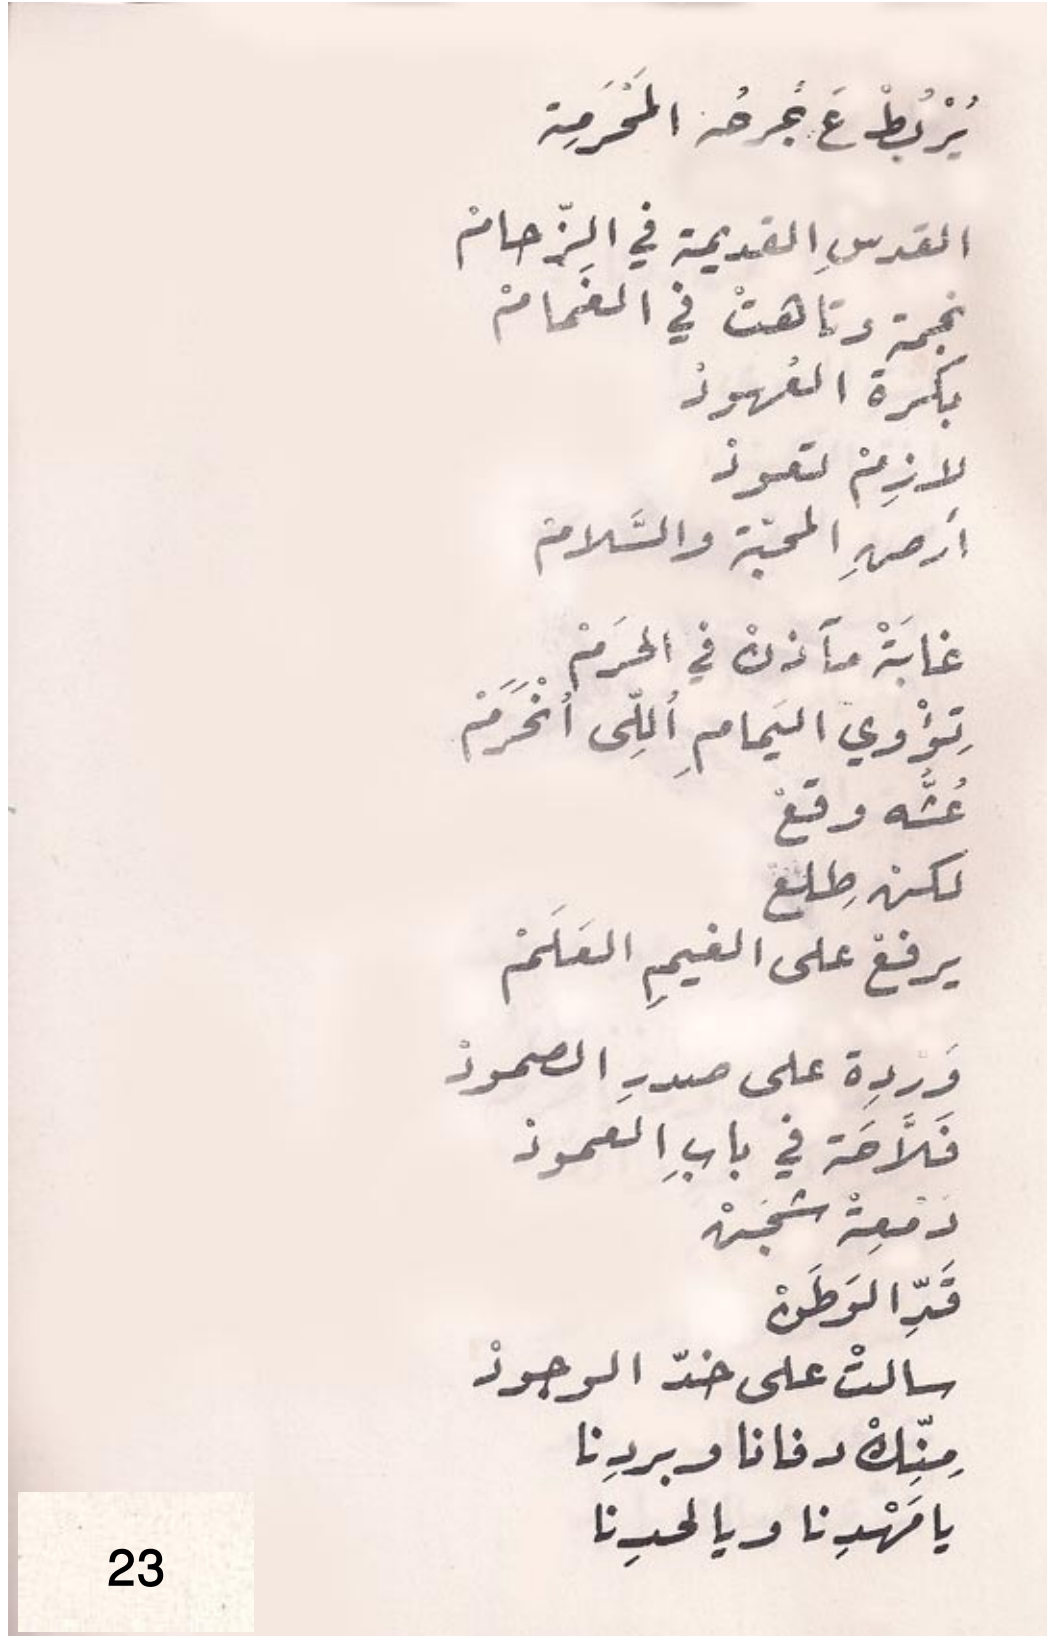 يُرْبُطْ عَ جُرحُه المَحْرَمِة
القدسِ القديمة في الزِّحامْ
نجمة وتاهتْ في الغَمامْ
بكرة العُهودْ
لازِمْ تعودْ
أرضِ المحبّة والسَّلامْ
غابَةْ مآذنْ في الحرَمْ
تِؤْوي اليَمامِ اُللِّى اُنْحَرَمْ
عُشُّه وقعْ
لكنْ طِلِعْ
يرفعْ على الغيمِ العَلَمْ
وَرْدِة على صدرِ الصمودْ
فَلَّاحَة في بابِ العمودْ
دَمعِةْ شَجَنْ
قَدِّ الوَطَنْ
سالتْ على خدّ الوجودْ
مِنِّكْ دفانا وبردِنا
يا مَهْدِنا ويا لحدِنا
23